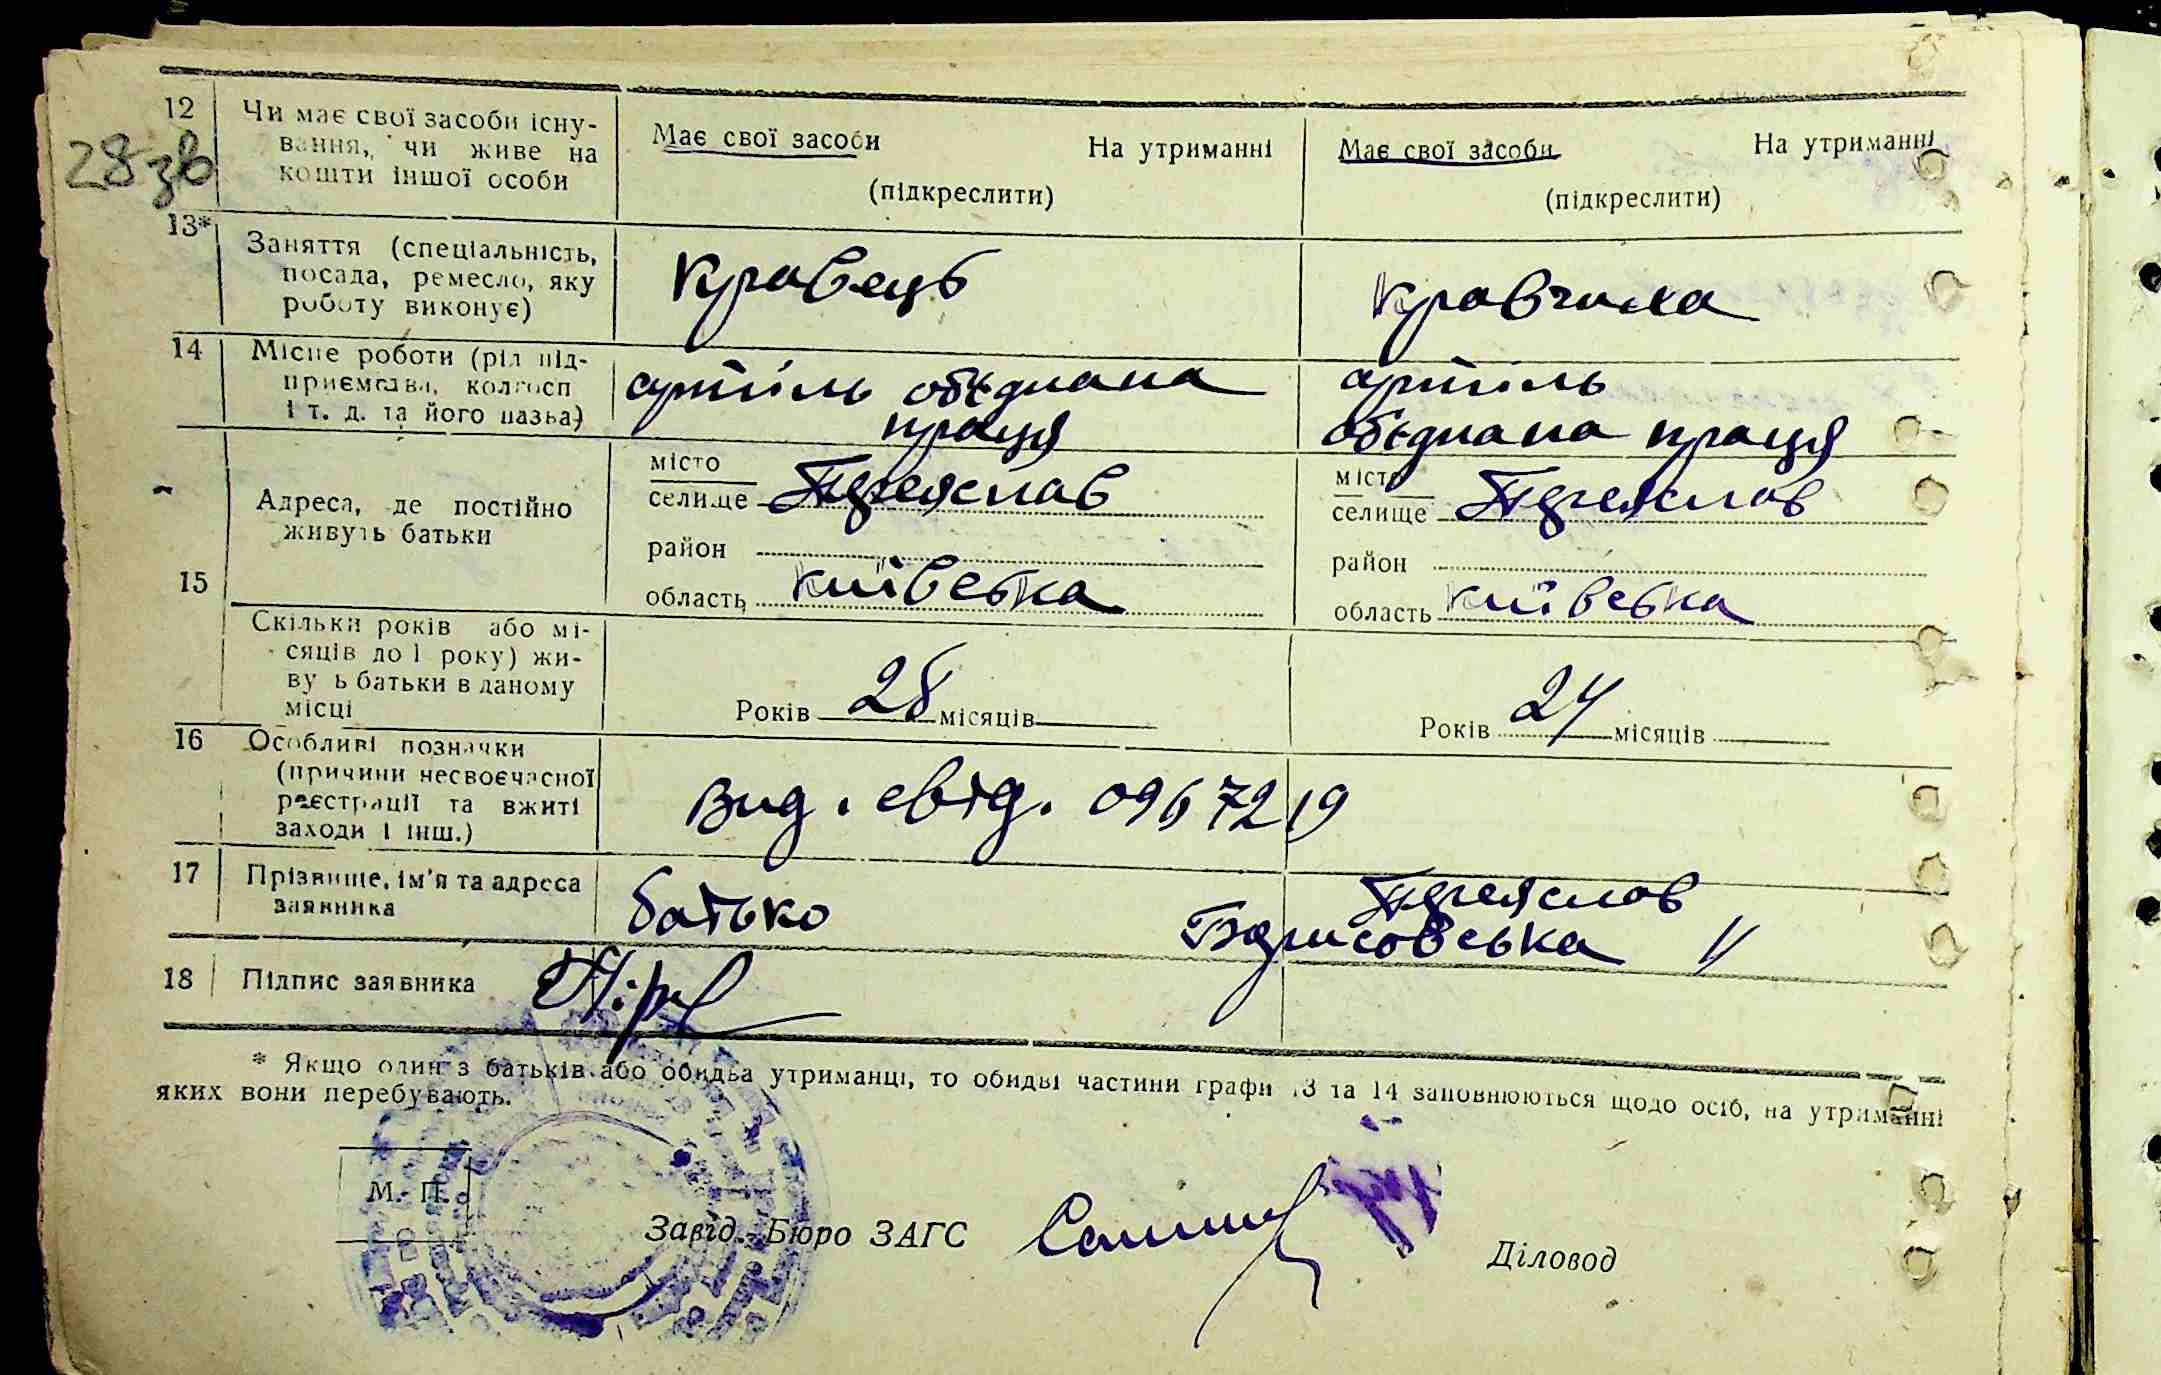 12
28зв
Чи має свої засоби існу-
вання, чи живе на
кошти іншої особи
Має свої засоби На утриманні
(підкреслити)
Має свої засоби На утриманні
(підкреслити)
13*
Заняття (спеціальність,
посада, ремесло, яку
роботу виконує)
Кравець
Кравчиха
14
Місце роботи (рід під-
приємства, колгосп
і т. д. та його назва)
артіль обєднана
праця
артіль
обєднана праця
15
Адреса, де постійно
живуть батьки
місто
селище Переяслав
район
область Київська
місто
селище Переяслав
район
область Київська
Скільки років або мі-
сяців до 1 року) жи-
ву ь батьки в даному
місці
Років 28 місяців
Років 24 місяців
16
Особливі позначки
(причини несвоєчасної
реєстрації та вжиті
заходи і інш.)
Вид. свід. 0967219
17
Прізвище, ім'я та адреса
заявника
батько
Переяслав
Борисовська
18 Підпис заявника
* Якщо один з батьків або обидва утриманці, то обидві частини графи 13 та 14 заповнюються щодо осіб, на утриманні
яких вони перебувають.
М. П.
Завід. Бюро ЗАГС
Діловод